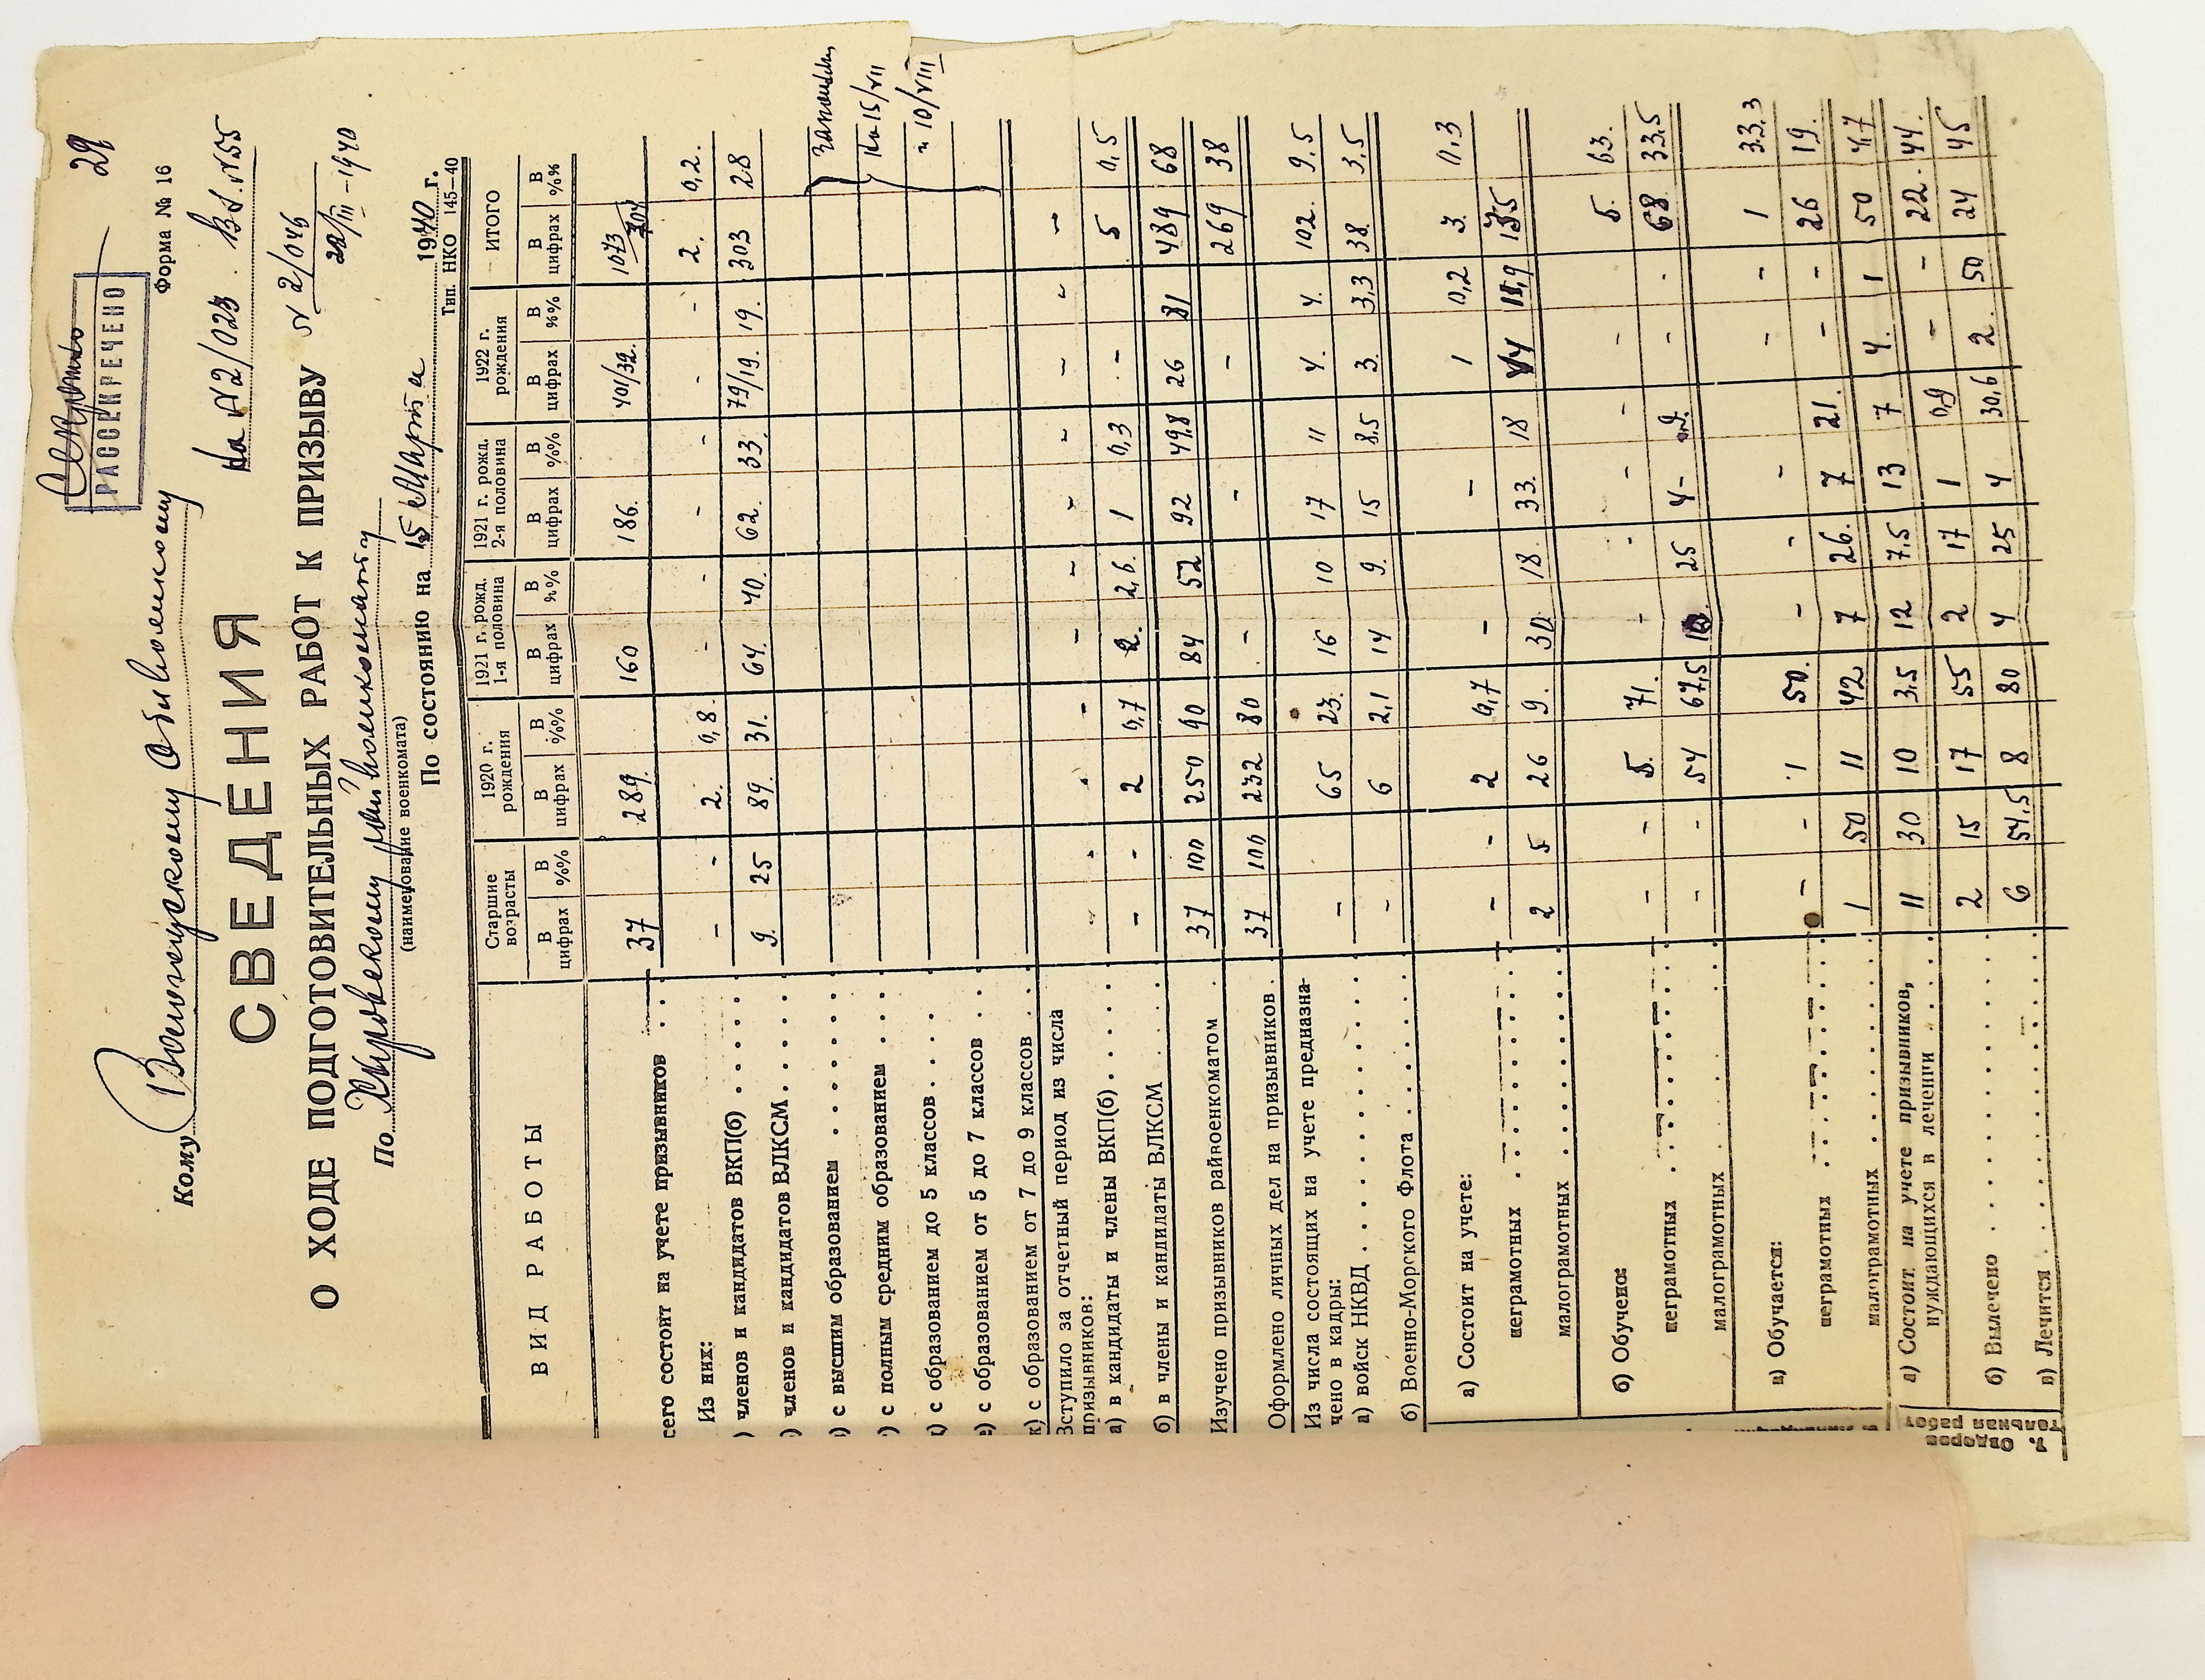 Секретно
РАССЕКРЕЧЕНО
29
Форма № 16
Кому Вологодскому Облвоенкому
На №2/023 вх. №55
СВЕДЕНИЯ
О ХОДЕ ПОДГОТОВИТЕЛЬНЫХ РАБОТ К ПРИЗЫВУ № 2/046
22/III-1940
По Кировскому райвоенкомату
(наименование военкомата)
По состоянию на 15 Марта 1940 г.
Тип. НКО 145—40
ВИД РАБОТЫ | Старшие возрасты | 1920 г. рождения | 1921 г. рожд. 1-я половина | 1921 г. рожд. 2-я половина | 1922 г. рождения | ИТОГО
В цифрах | В %% | В цифрах | В %% | В цифрах | В %% | В цифрах | В %% | В цифрах | В %% | В цифрах | В %%
сего состоит на учете призывников . . . 37 289. 160 186. 401/32. 1073/704
Из них:
) членов и кандидатов ВКП(б) . . . . . . - - 2. 0,8. - - - - - - 2. 0,2.
) членов и кандидатов ВЛКСМ . . . . . . 9. 25 89. 31. 64. 40. 62. 33. 79/19. 19. 303 28
) с высшим образованием . . . . . . . .
) с полным средним образованием . . . .
) с образованием до 5 классов . . . . .
) с образованием от 5 до 7 классов . . .
) с образованием от 7 до 9 классов . . .
На 15/VII
" 10/VIII
Вступило за отчетный период из числа
призывников: - - - - - - - - - - -
а) в кандидаты и члены ВКП(б) . . . . . - - 2 0,7 2. 2,6. 1 0,3 - 5 0,5
б) в члены и кандидаты ВЛКСМ . . . . . 37 100 250 90 84 52 92 49,8 26 81 489 68
Изучено призывников райвоенкоматом . 37 100 232 80 - - - 269 38
Оформлено личных дел на призывников .
Из числа состоящих на учете предназна-
чено в кадры:
а) войск НКВД . . . . . . . . . . . . - 65 23. 16 10 17 11 4. 4. 102. 9.5
б) Военно-Морского Флота . . . . . . . - 6 2,1 14 9. 15 8.5 3. 3,3 38. 3,5
а) Состоит на учете:
неграмотных . . . . . . . . - - 2 0,7 - - 1 0,2 3. 0,3
малограмотных . . . . . . . . 2 5 26 9. 30. 18. 33. 18 44 11,9 135
б) Обучено:
неграмотных . . . . . . . . - - 5. 71. - - - - - 5. 63.
малограмотных . . . . . . . . - - 54 67,5 10. 25 4- 9. - - 68. 33,5
в) Обучается:
неграмотных . . . . . . . . - - 1 50. - - - - - 1 33.3
малограмотных . . . . . . . . 1 50 11 42 7 26. 7 21. - - 26 19.
а) Состоит на учете призывников,
нуждающихся в лечении . . . . 11 30 10 3,5 12 7,5 13 7 4. 1 50 4,7
б) Вылечено . . . . . . . . . . 2 15 17 55 2 17 1 0,9 - - 22. 44.
в) Лечится . . . . . . . . . . . 6 54.5 8 80 4 25 4 30,6 2. 50 24 45